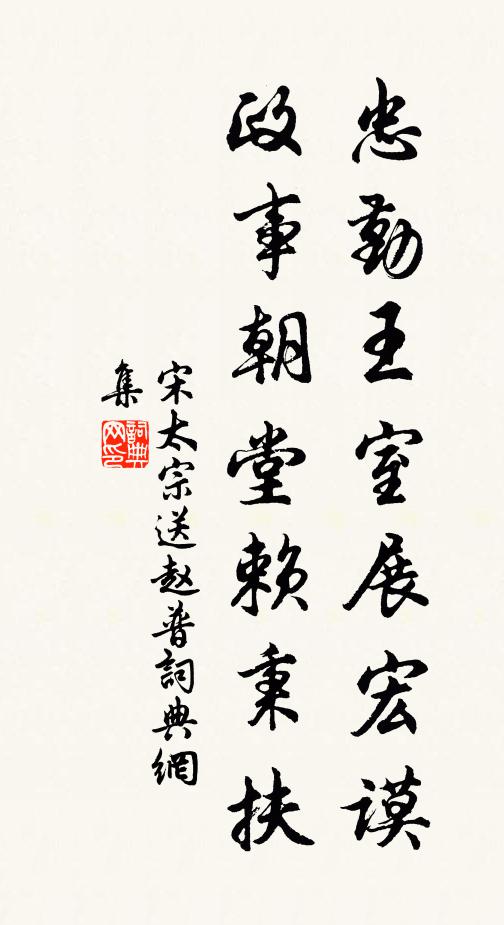 忠勤王室展宏谟
政事朝堂赖秉扶
宋太宗送赵普詞典網
集
詞典
网印